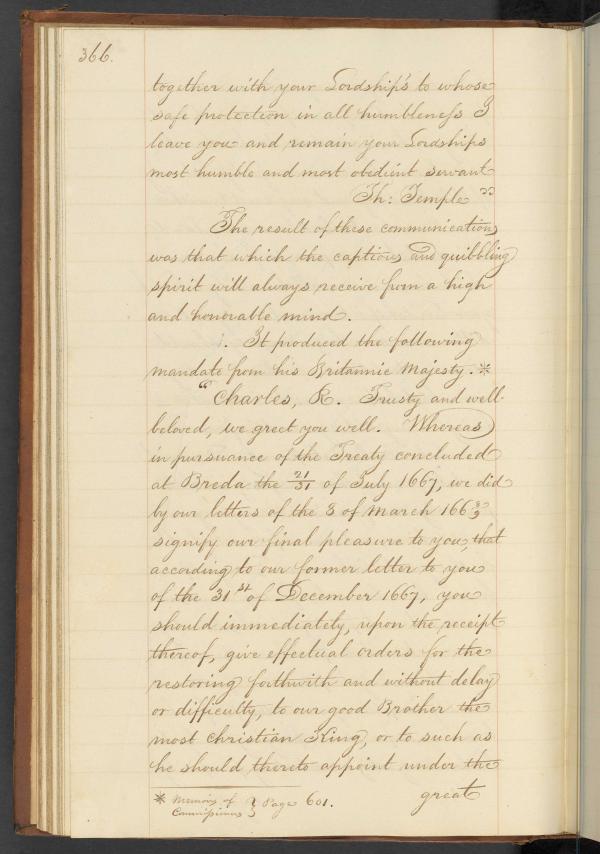 366.
together with your Lordship's to whose
safe protection in all humbleness I
leave you and remain your Lordships
most humble and most obedient servant
Th: Temple "
The result of these communications
was that which the captious and quibbling
spirit will always receive from a high
and honorable mind.
It produced the following
mandate from his Britannic Majesty. *
"Charles, R. Trusty and well-
beloved, we greet you well. Whereas
in pursuance of the Treaty concluded
at Breda the 21/31 of July 1667, we did
by our letters of the 8 of March 166 8/9
signify our final pleasure to you, that
according to our former letter to you
of the 31st of December 1667, you
should immediately, upon the receipt
thereof, give effectual orders for the
restoring forthwith and without delay
or difficulty, to our good Brother the
most Christian King, or to such as
he should thereto appoint under the
great
* Memoirs of } Page 601.
Commissioners